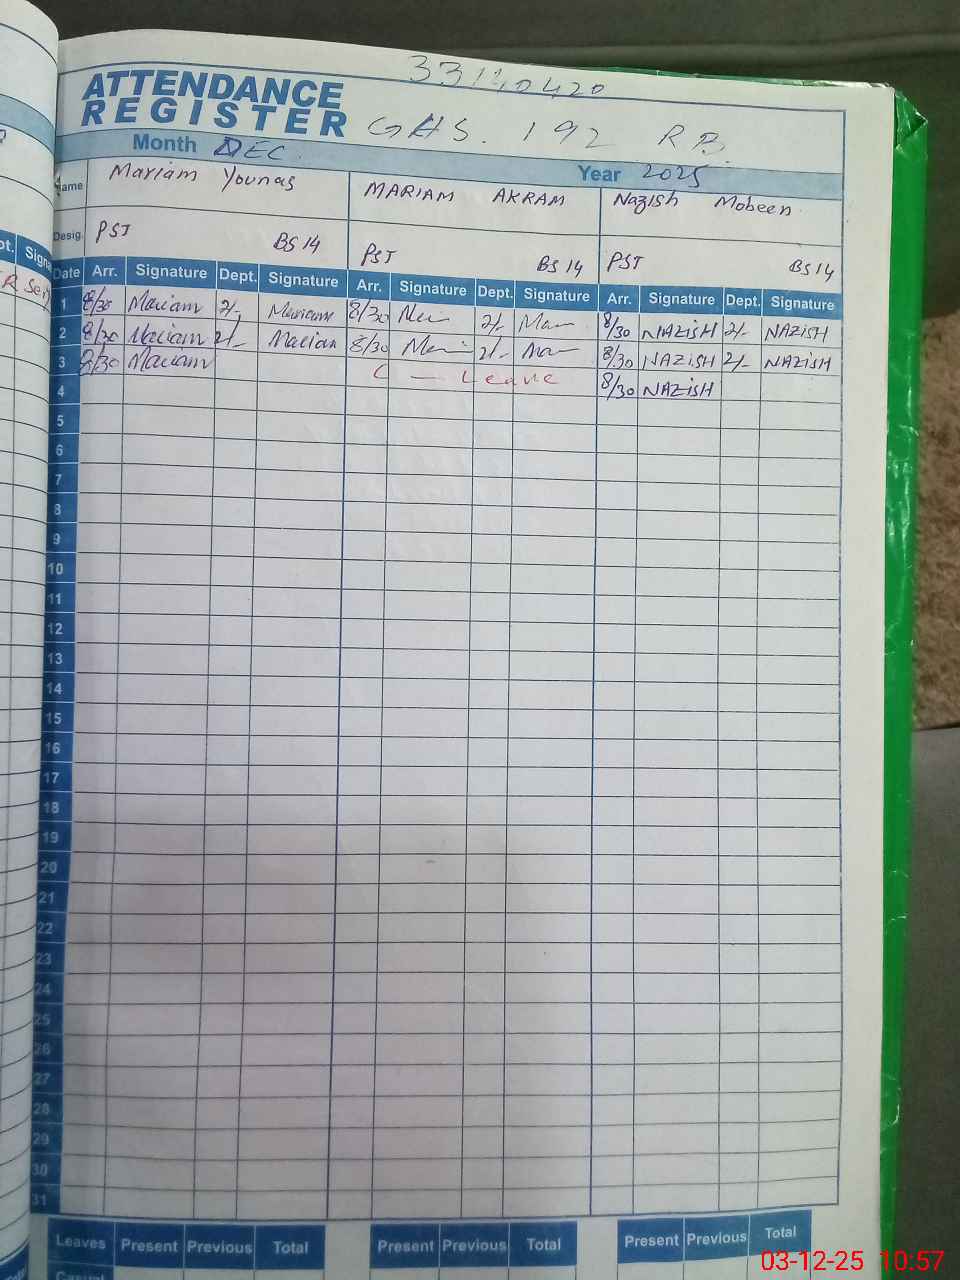 33140420
ATTENDANCE
REGISTER
GHS. 192 RB.
Month DEC. Year 2025
Name Mariam Younas MARIAM AKRAM Nazish Mobeen
Desig. PST BS 14 PST BS 14 PST BS 14
Date Arr. Signature Dept. Signature Arr. Signature Dept. Signature Arr. Signature Dept. Signature
1 8/30 Mariam 2/- Mariam 8/30 2/- 8/30 NAZISH 2/- NAZISH
2 8/30 Mariam 2/- Mariam 8/30 2/- 8/30 NAZISH 2/- NAZISH
3 8/30 Mariam C — Leave 8/30 NAZISH
4
5
6
7
8
9
10
11
12
13
14
15
16
17
18
19
20
21
22
23
24
25
26
27
28
29
30
31
Leaves Present Previous Total Present Previous Total Present Previous Total
Casual
03-12-25 10:57